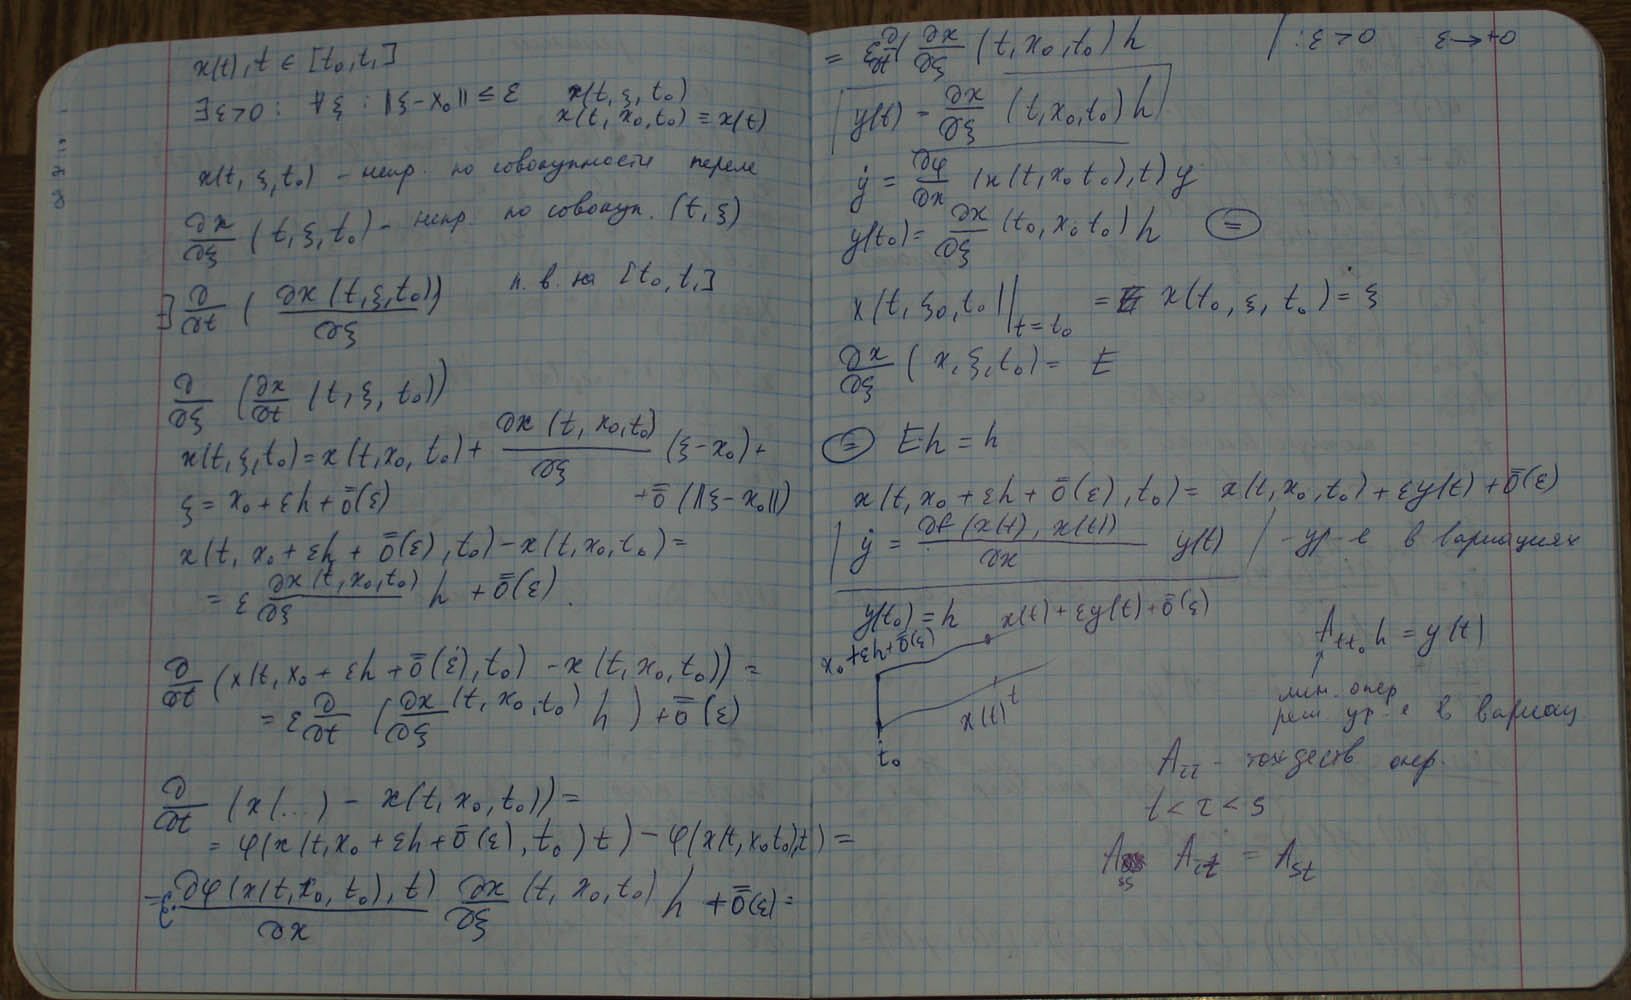 x(t), t ∈ [t₀, t₁]
∃ε>0 : ∀ξ : ||ξ-x₀|| ≤ ε x(t, ξ, t₀)
x(t, x₀, t₀) ≡ x(t)
x(t, ξ, t₀) – непр. по совокупности переме
∂x/∂ξ (t, ξ, t₀) – непр по совокуп. (t, ξ)
∃ ∂/∂t (∂x(t, ξ, t₀)/∂ξ) п. в. на [t₀, t₁]
∂/∂ξ (∂x/∂t (t, ξ, t₀))
x(t, ξ, t₀) = x(t, x₀, t₀) + ∂x(t, x₀, t₀)/∂ξ (ξ-x₀) +
+ ō̄(||ξ-x₀||)
ξ = x₀ + εh + ō̄(ε)
x(t, x₀ + εh + ō̄(ε), t₀) – x(t, x₀, t₀) =
= ε ∂x(t, x₀, t₀)/∂ξ h + ō̄(ε).
∂/∂t (x(t, x₀ + εh + ō̄(ε), t₀) – x(t, x₀, t₀)) =
= ε ∂/∂t (∂x/∂ξ (t, x₀, t₀) h) + ō̄(ε)
∂/∂t (x(...) – x(t, x₀, t₀)) =
= φ(x(t, x₀ + εh + ō̄(ε), t₀) t) – φ(x(t, x₀ t₀), t) =
= ε· ∂φ(x(t, x₀, t₀), t)/∂x ∂x/∂ξ (t, x₀, t₀) h + ō̄(ε) =
= ε ∂/∂t (∂x/∂ξ (t, x₀, t₀) h | : ε>0 ε→+0
y(t) = ∂x/∂ξ (t, x₀, t₀) h
ẏ = ∂φ/∂x (x(t, x₀ t₀), t) y
y(t₀) = ∂x/∂ξ (t₀, x₀ t₀) h (=)
x(t, ξ₀, t₀)|t=t₀ = x(t₀, ξ, t₀) = ξ
∂x/∂ξ (x, ξ, t₀) = E
(=) E·h = h
x(t, x₀ + εh + ō̄(ε), t₀) = x(t, x₀, t₀) + εy(t) + ō̄(ε)
ẏ = ∂f(x(t), x(t))/∂x y(t) – ур-е в вариациях
y(t₀) = h x(t) + εy(t) + ō̄(ε)
x₀ + εh + ō̄(ε)
A_tt₀ h = y(t)
t
x(t)
t₀
лин. опер
реш. ур-е в вариац
A_ττ – тождеств опер.
t < τ < s
A_sτ A_τt = A_st